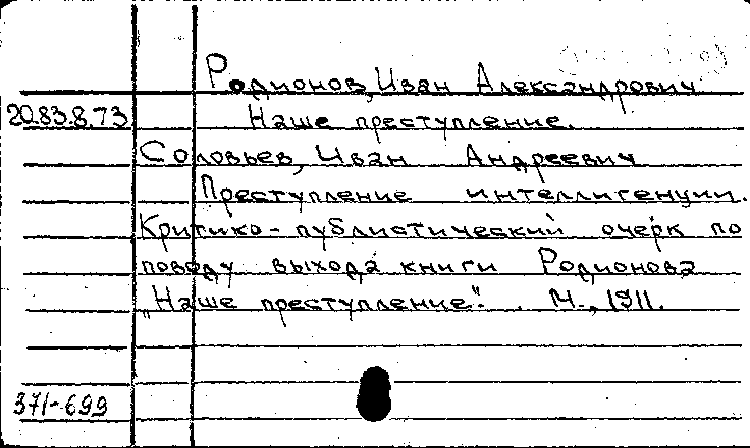 Родионов, Иван Александрович
20.83.8.73 Наше преступление.
Соловьев, Иван Андреевич
Преступление интеллигенции.
Критико-публистический очерк по
поводу выхода книги Родионова
„Наше преступление". М., 1911.
371-699